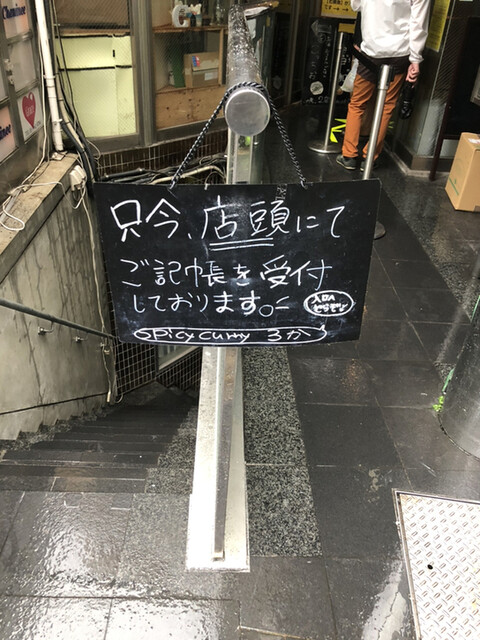 只今、店頭にて
ご記帳を受付
しております。
入口A
どうぞ
spicy curry 3か